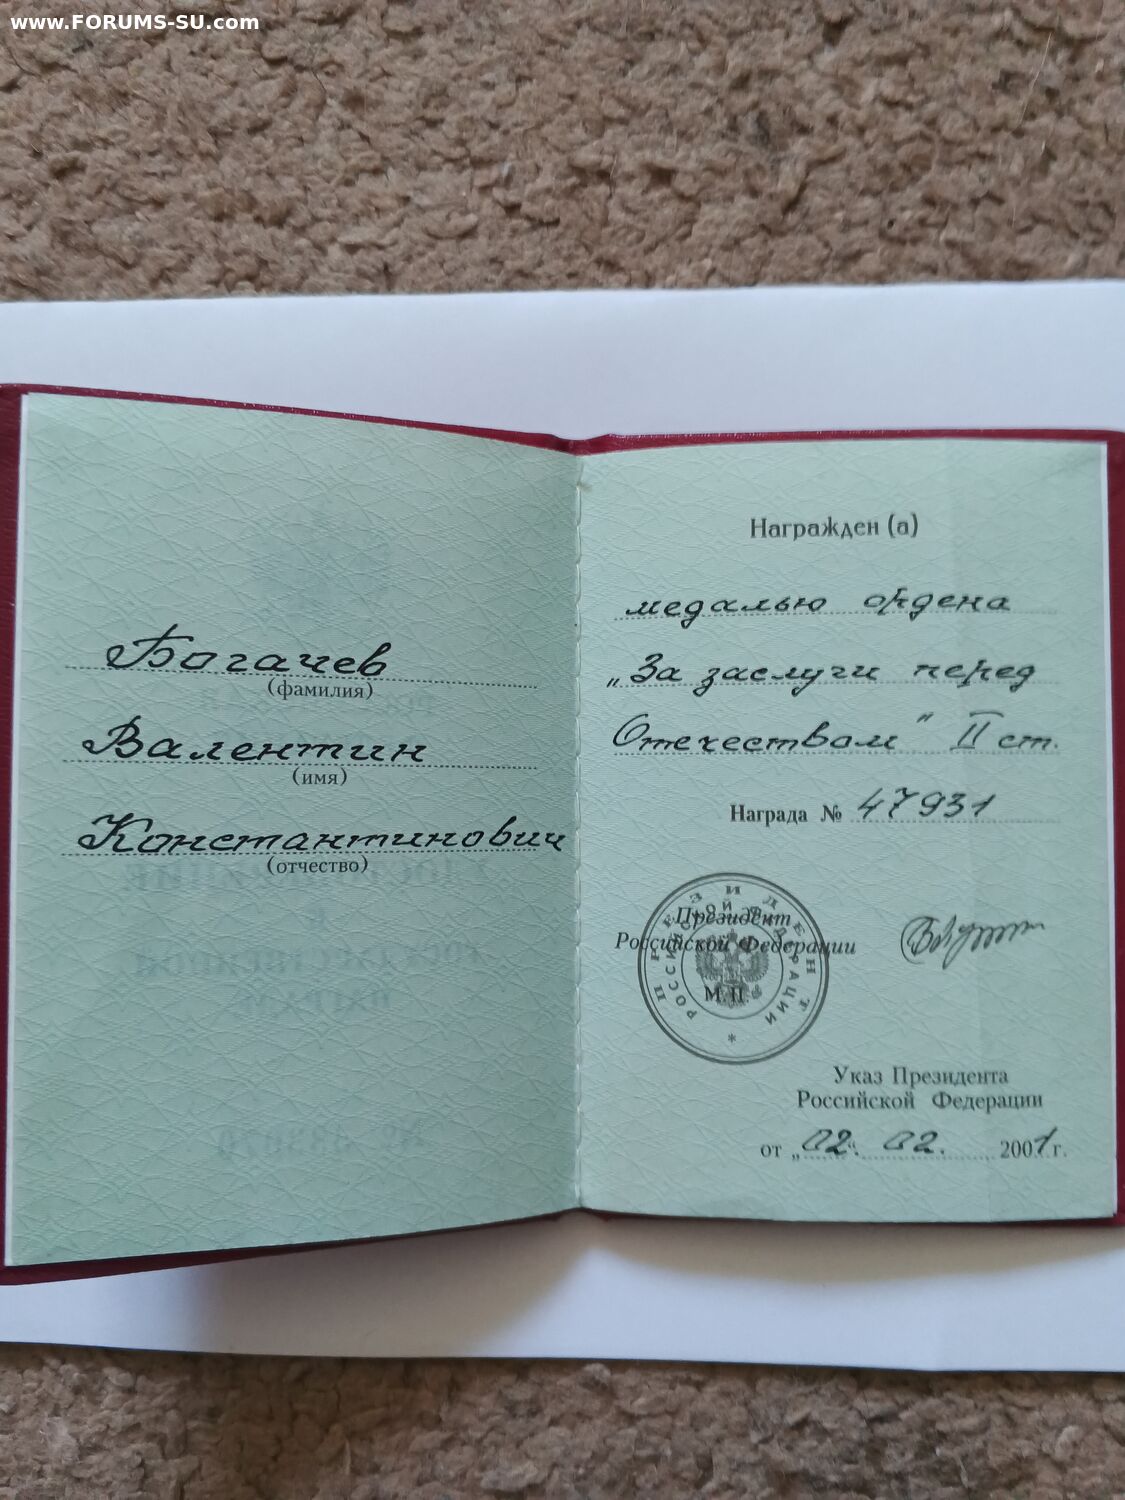 www.FORUMS-SU.com
Богачев
(фамилия)
Валентин
(имя)
Константинович
(отчество)
Награжден (а)
медалью ордена
„За заслуги перед
Отечеством“ II ст.
Награда № 47931
ПРЕЗИДЕНТ
РОССИЙСКОЙ ФЕДЕРАЦИИ
Президент
Российской Федерации
М.П.
Указ Президента
Российской Федерации
от „02“. 02. 2001 г.